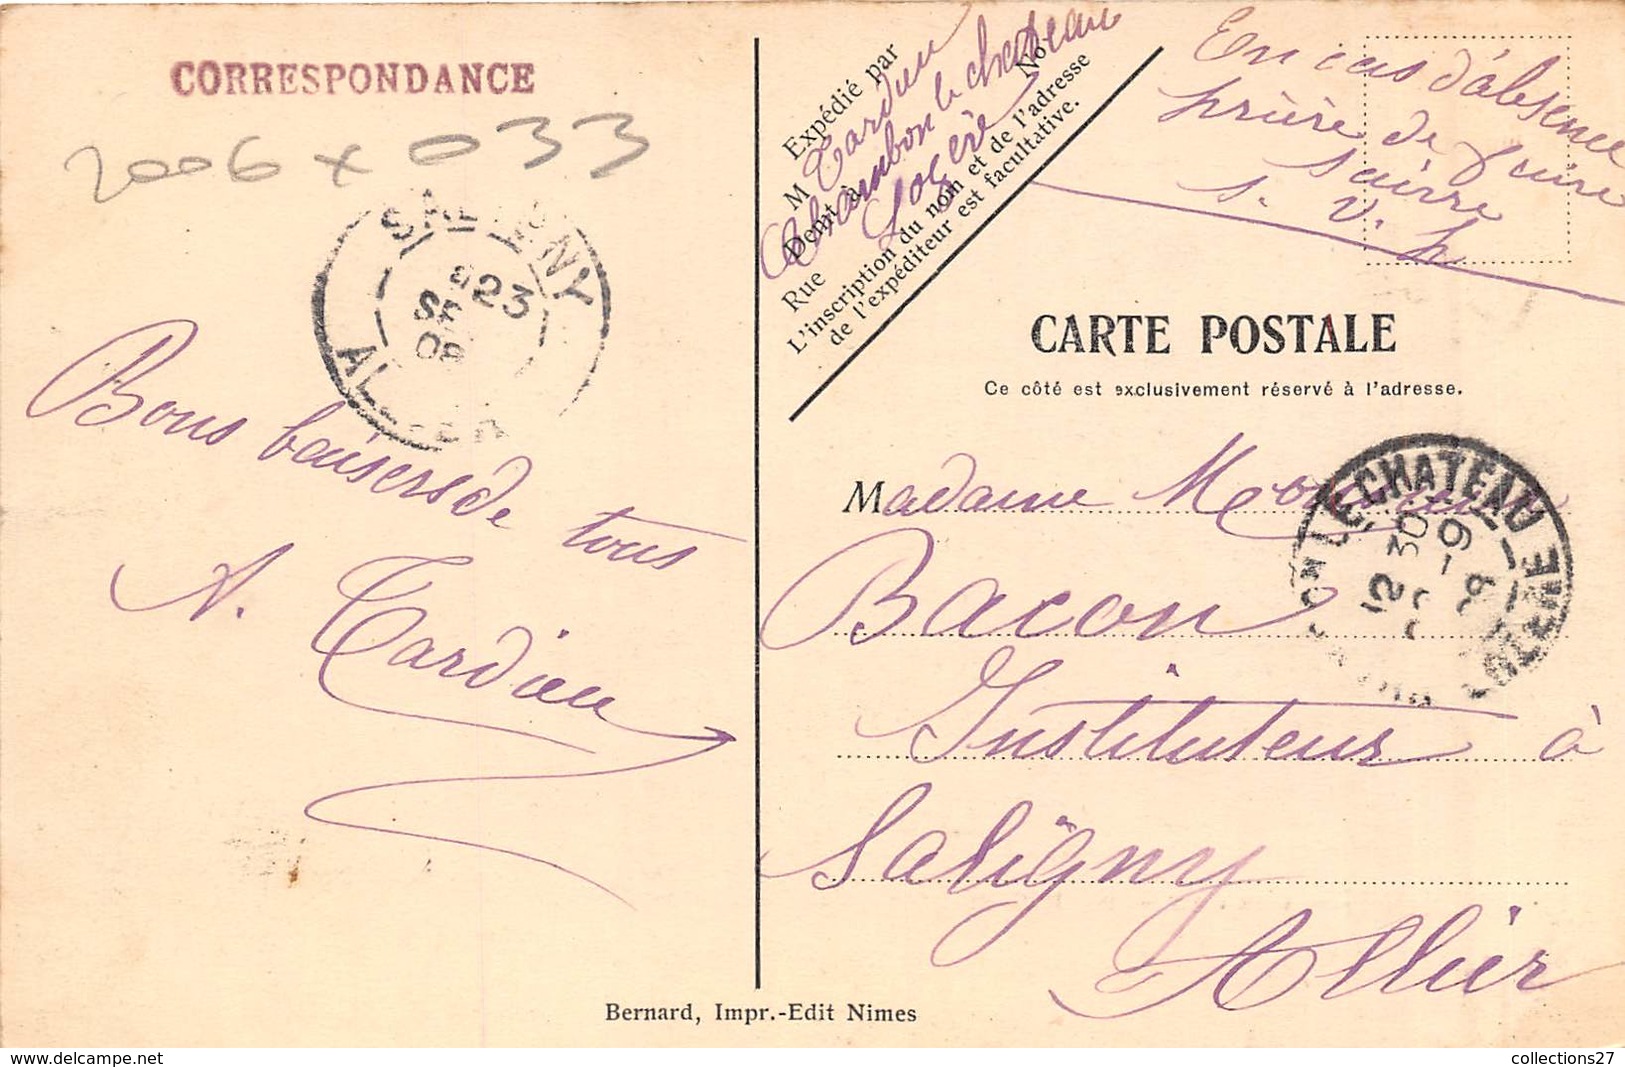 CORRESPONDANCE
2006 x 033
SALIGNY
23
SE
08
Bons baisers de
tous
A. Tardieu
Expédié par
M Tardieu
Demt à Chambon le chateau
Rue No
Lozère
L'inscription du nom et de l'adresse
de l'expéditeur est facultative.
En cas d'absence
prière de faire
suivre
s. v. p
CARTE POSTALE
Ce côté est exclusivement réservé à l'adresse.
Madame
LE CHATEAU
12 30
Bacon
Instituteur à
Saligny
Allier
Bernard, Impr.-Edit Nimes
collections27